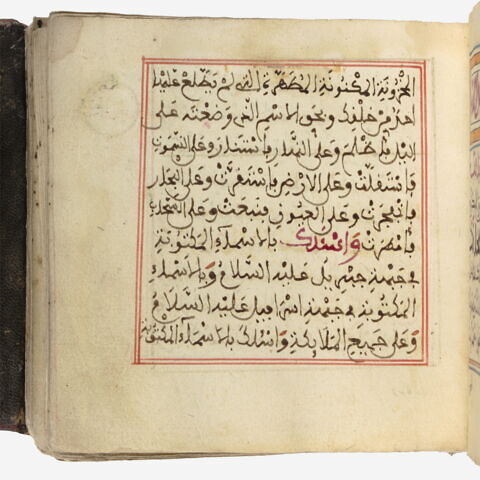 المخزونة المكنونة المطهرة التي لم يطلع عليها
احد من خلقك وبحق الاسم الذي وضعته على
اليل فاظلم وعلى النهار فاستنار وعلى السموات
فاستقلت وعلى الارض فاستقرت وعلى البحار
فانفجرت وعلى العيون فنبعت وعلى السحاب
فامطرت واسئلك بالاسماء المكتوبة
في جبهة جبريل عليه السلام وبالاسماء
المكتوبة في جبهة اسرافيل عليه السلام
وعلى جميع الملائكة واسئلك بالاسماء المكتوبة